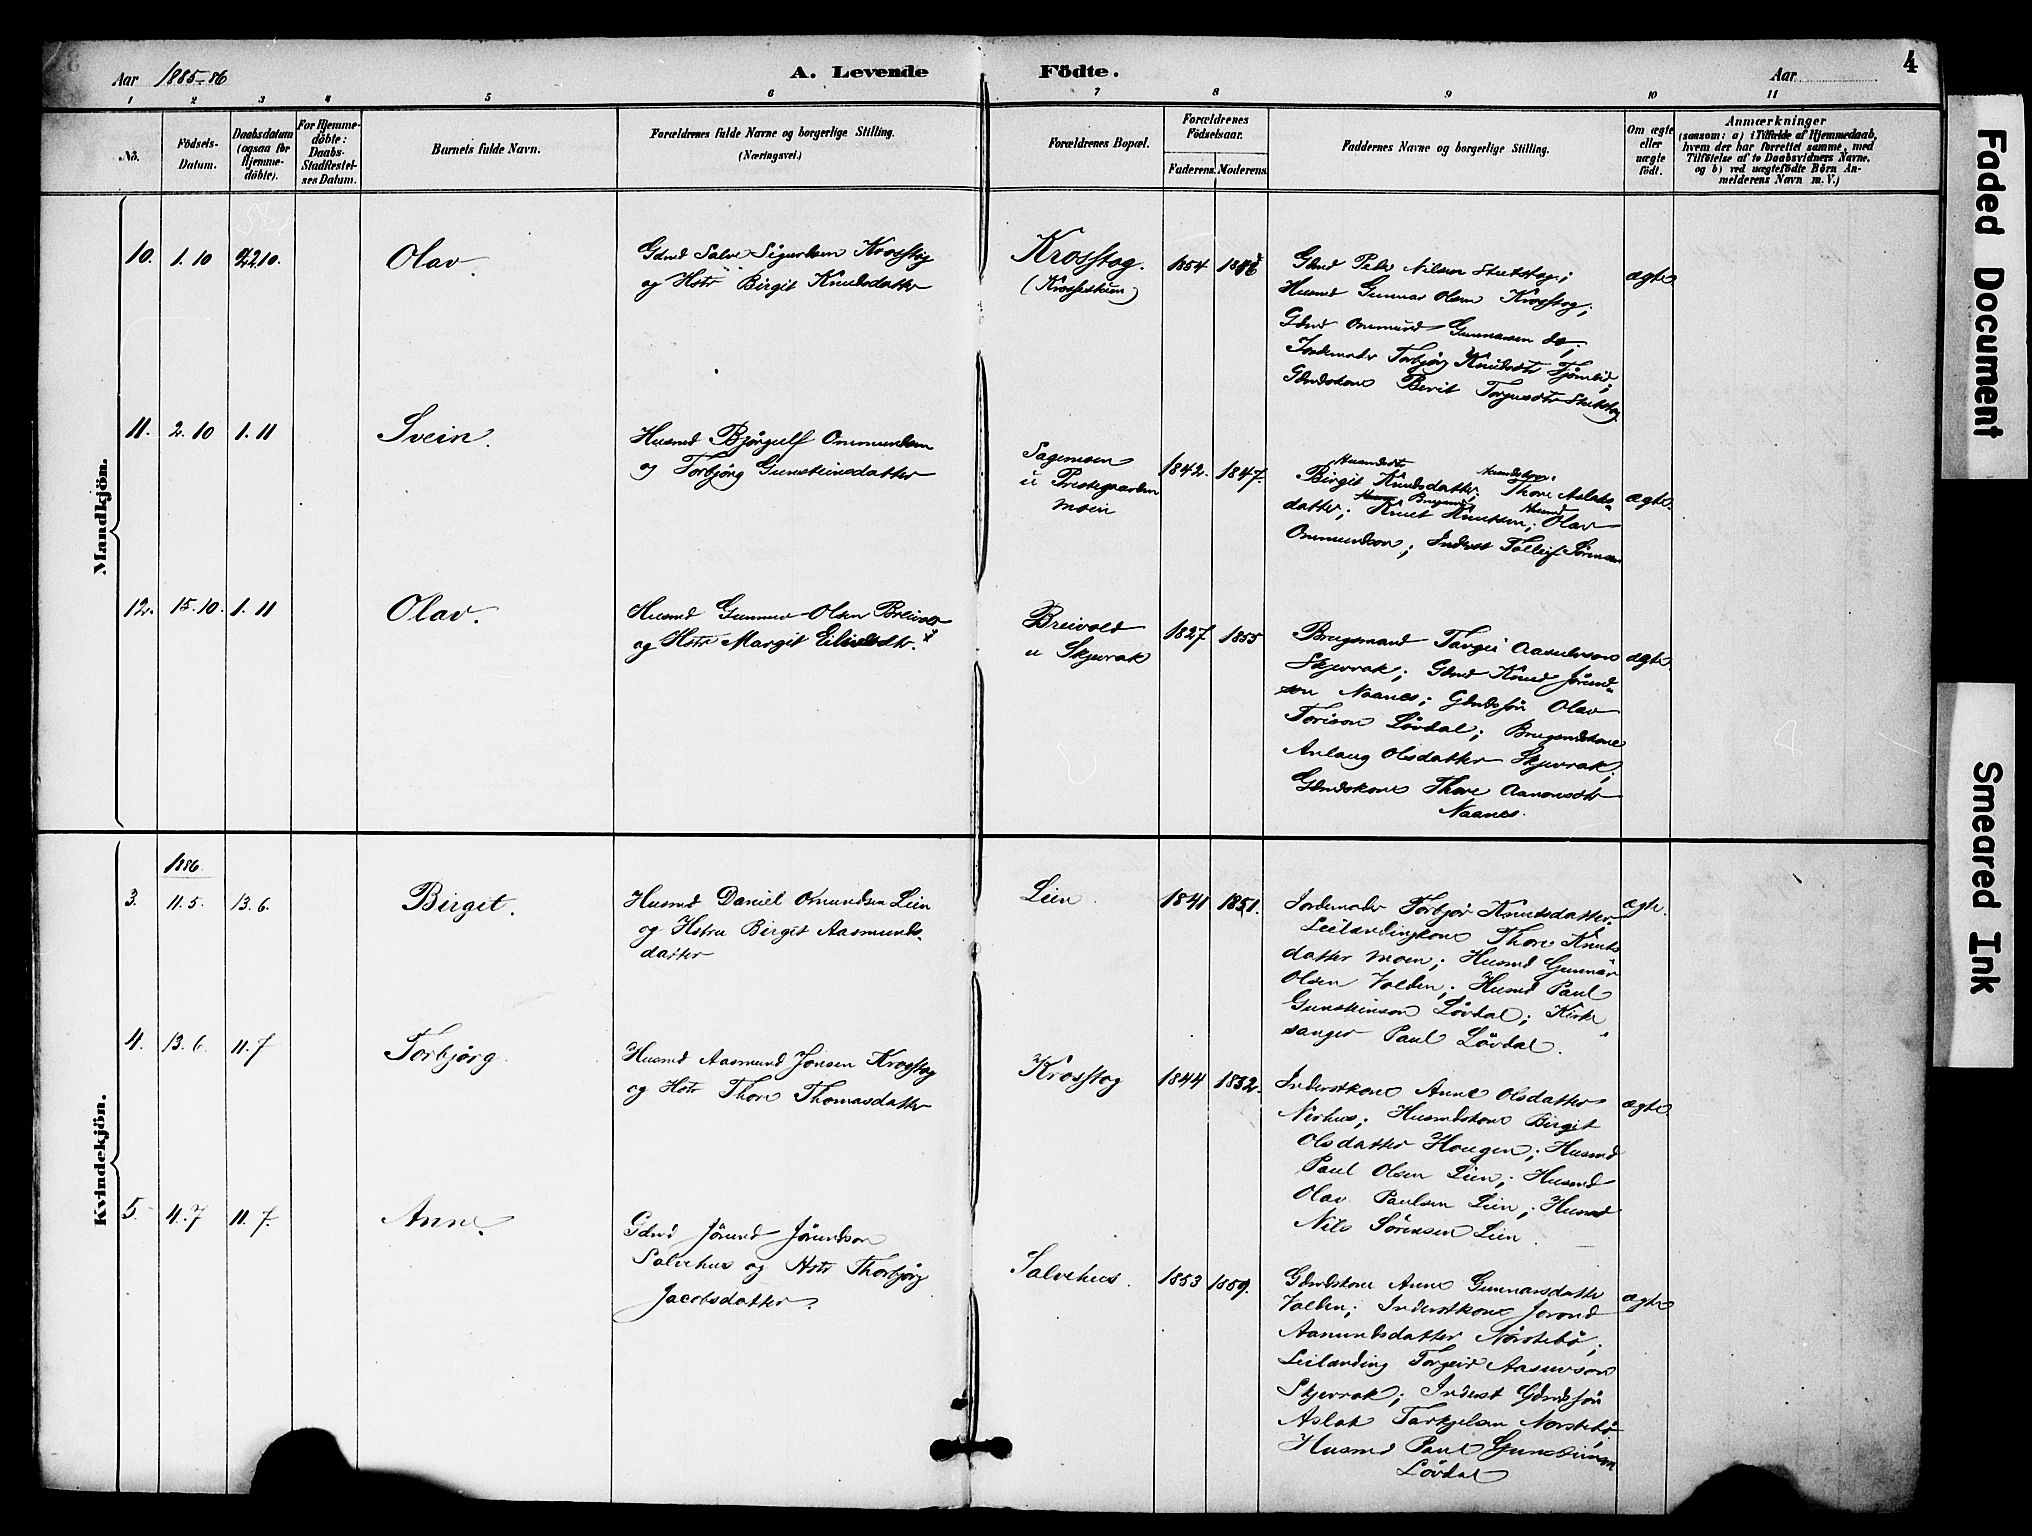 Aar 1885-86
A. Levende Födte.
Aar
4
1 2 3 4 5 6 7 8 9 10 11
No.
Födsels-
Datum.
Daabsdatum
(ogsaa for
Hjemme-
döbte).
For Hjemme-
döbte:
Daabs-
Stadfæstel-
ses Datum.
Barnets fulde Navn.
Forældrenes fulde Navne og borgerlige Stilling.
(Næringsvei.)
Forældrenes Bopæl.
Forældrenes
Födselsaar.
Faderens. Moderens.
Faddernes Navne og borgerlige Stilling.
Om ægte
eller
uægte
födt.
Anmærkninger
(saasom: a) i Tilfælde af Hjemmedaab,
hvem der har forrettet samme, med
Tilföielse af to Daabsvidners Navne.
og b) ved uægtefödte Börn An-
melderens Navn m. V.)
Mandkjön.
10. 1.10
Olav.
Gdmd Salve Sigurdsen Krosstog
og Hstr Birgit Knudsdatter
Krosstog.
1854
Gdmd Peder Nilsen
Husmd Gunnar Olsen Krosstog;
Gdmd Ommund Gunnarsen do;
Jordemoder Torbjørg Knudsdtr
Gdmdskone Berit
ægte
11. 2.10 1.11
Svein.
Husmd Bjørgulf Ommundsen
og Torbjørg Gunsteinsdatter
Sagemoen
u Prestegaarden
Moen
1842. 1847.
Birgit Knudsdatter; Thore Aslaks-
datter; Knut Knutsen; Olav
Ommundson; Inderst Tollef
ægte.
12. 15.10. 1.11
Olav.
Husmd Gunnar Olsen
og Hstr Margit
Breivold
u Skjevrak
1827 1855
Brugsmand Targei
Skjevrak; Gdmd Knud Jørund-
son Naanes; Gdmdssøn Olav
Torison Løvdal; Brugsmdskone
Anlaug Olsdatter Skjevrak;
Gdmdskone Thore
Naanes.
ægte.
Kvindekjön.
1886.
3. 11.5. 13.6.
Birget.
Husmd Daniel Omundsen Lien
og Hstru Birget Aasmunds-
datter
Lien.
1841 1851.
Jordemoder Torbjør Knutsdatter
Leilændingkone Thore Knuts
datter Moen; Husmd Gunnar
Olsen Valden; Husmd Paul
Gunsteinson Løvdal; Kirke
sanger Paul Løvdal.
ægte.
4. 13.6. 11.7
Torbjørg.
Husmd Aasmund Jonsen Krosstog
og Hstr Thore Thomasdatter
Krosstog
1844 1852.
Inderstkone Anne Olsdatter
Nirhus; Husmdskone Birgit
Olsdatter Haugen; Husmd
Paul Olsen Lien; Husmd
Olav Paulsen Lien; Husmd
Nils Sørensen Lien.
ægte
5. 4.7 11.7.
Anne.
Gdmd Jørund Jørundson
Salvehus og Hstr Thorbjørg
Jacobsdatter.
Salvehus.
1853 1859.
Gdmdskone Anne Gunnarsdatter
Valden; Inderstkone Jorond
Aamundsdatter Norstebø;
Leilænding Torgeir Aasmson
Skjevrak; Inderst Gdmdssøn
Aslak Tarkjelsen Norstebø
Husmd Paul Gunsteinson
Løvdal
ægte
Faded Document
Smeared Ink